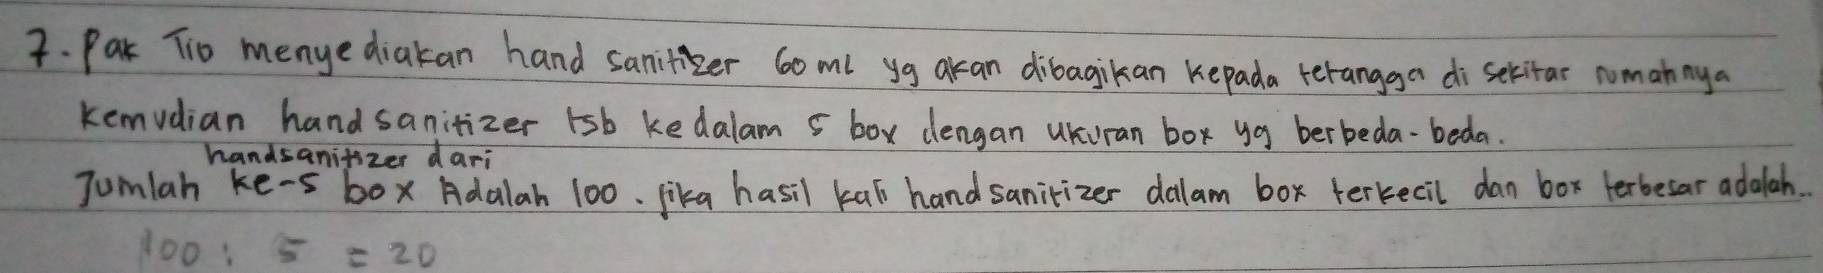 7. Pak Tio menyediakan hand sanitizer 60 ml yg akan dibagikan kepada tetangga di sekitar rumahnya
kemudian hand sanitizer tsb kedalam 5 box dengan ukuran box yg berbeda-beda.
handsanitizer dari
Jumlah ke-5 box Adalah 100. jika hasil kali hand sanitizer dalam box terkecil dan box terbesar adalah..
100 : 5 = 20